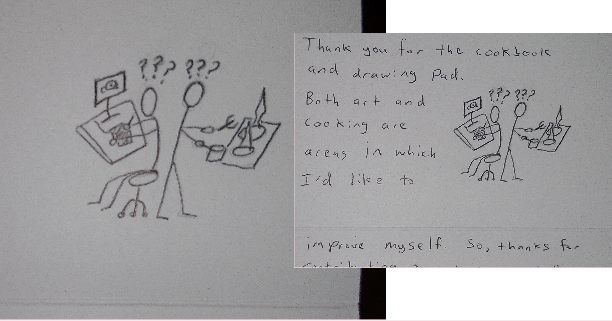 ??? ???
Thank you for the cookbook
and drawing Pad.
??? ???
Both art and
cooking are
areas in which
I'd like to
improve myself So, thanks for